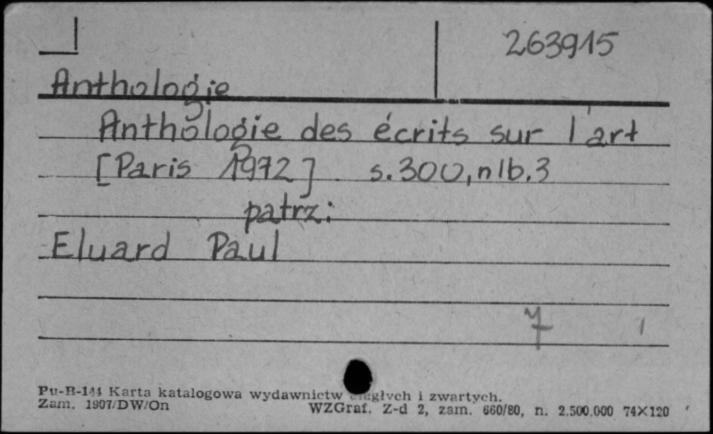 263915
Anthologie
Anthologie des écrits sur l'art
[Paris 1972] s.300, nlb.3
patrz:
Eluard Paul
7 1
Pu-B-144 Karta katalogowa wydawnictw ciągłych i zwartych.
Zam. 1907/DW/On WZGraf. Z-d 2, zam. 660/80, n. 2.500.000 74×120